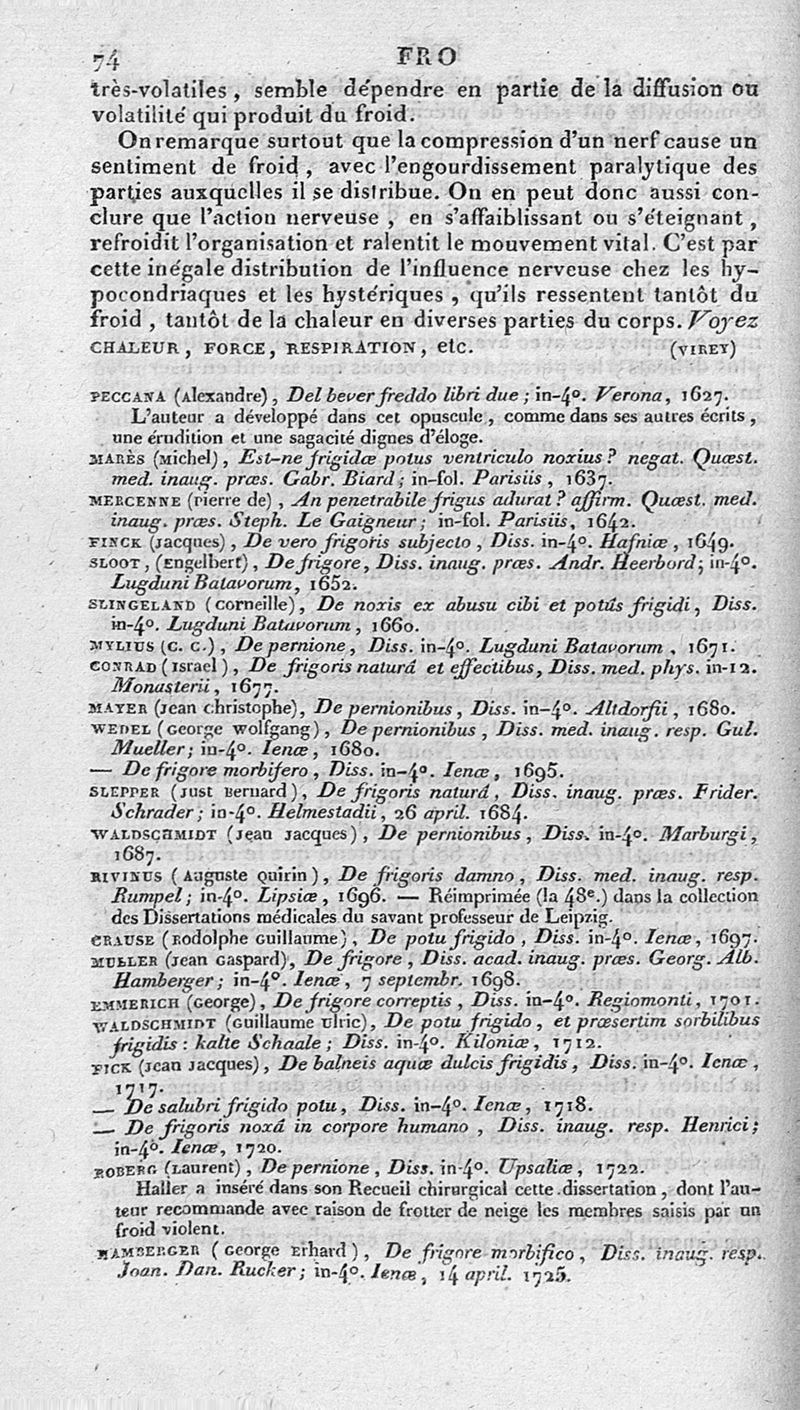 74 FRO
très-volatiles, semble dépendre en partie de la diffusion ou
volatilité qui produit du froid.
On remarque surtout que la compression d'un nerf cause un
sentiment de froid, avec l'engourdissement paralytique des
parties auxquelles il se distribue. On en peut donc aussi con-
clure que l'action nerveuse, en s'affaiblissant ou s'éteignant,
refroidit l'organisation et ralentit le mouvement vital. C'est par
cette inégale distribution de l'influence nerveuse chez les hy-
pocondriaques et les hystériques, qu'ils ressentent tantôt du
froid, tantôt de la chaleur en diverses parties du corps. Voyez
CHALEUR, FORCE, RESPIRATION, etc. (VIREY)
PECCANA (Alexandre), Del bever freddo libri due; in-4°. Verona, 1627.
L'auteur a développé dans cet opuscule, comme dans ses autres écrits,
une érudition et une sagacité dignes d'éloge.
MARÈS (Michel), Est-ne frigidæ potus ventriculo noxius? negat. Quæst.
med. inaug. præs. Gabr. Biard; in-fol. Parisiis, 1637.
MERCENNE (Pierre de), An penetrabile frigus adurat? affirm. Quæst. med.
inaug. præs. Steph. Le Gaigneur; in-fol. Parisiis, 1642.
FINCK (Jacques), De vero frigoris subjecto, Diss. in-4°. Hafniæ, 1649.
SLOOT, (Engelbert), De frigore, Diss. inaug. præs. Andr. Heerbord; in-4°.
Lugduni Batavorum, 1652.
SLINGELAND (Corneille), De noxis ex abusu cibi et potûs frigidi, Diss.
in-4°. Lugduni Batavorum, 1660.
MYLIUS (C. C.), De pernione, Diss. in-4°. Lugduni Batavorum, 1671.
CONRAD (Israel), De frigoris naturâ et effectibus, Diss. med. phys. in-12.
Monasterii, 1677.
MAYER (Jean Christophe), De pernionibus, Diss. in-4°. Altdorfii, 1680.
WEDEL (George Wolfgang), De pernionibus, Diss. med. inaug. resp. Gul.
Mueller; in-4°. Ienæ, 1680.
— De frigore morbifero, Diss. in-4°. Ienæ, 1695.
SLEPPER (Just Bernard), De frigoris naturâ, Diss. inaug. præs. Frider.
Schrader; in-4°. Helmestadii, 26 april. 1684.
WALDSCHMIDT (Jean Jacques), De pernionibus, Diss. in-4°. Marburgi,
1687.
RIVINUS (Auguste Quirin), De frigoris damno, Diss. med. inaug. resp.
Rumpel; in-4°. Lipsiæ, 1696. — Réimprimée (la 48e.) dans la collection
des Dissertations médicales du savant professeur de Leipzig.
CRAUSE (Rodolphe Guillaume), De potu frigido, Diss. in-4°. Ienæ, 1697.
MULLER (Jean Gaspard), De frigore, Diss. acad. inaug. præs. Georg. Alb.
Hamberger; in-4°. Ienæ, 7 septembr. 1698.
EMMERICH (George), De frigore correptis, Diss. in-4°. Regiomonti, 1701.
WALDSCHMIDT (Guillaume Ulric), De potu frigido, et præsertim sorbilibus
frigidis: kalte Schaale; Diss. in-4°. Kiloniæ, 1712.
FICK (Jean Jacques), De balneis aquæ dulcis frigidis, Diss. in-4°. Ienæ,
1717.
— De salubri frigido potu, Diss. in-4°. Ienæ, 1718.
— De frigoris noxâ in corpore humano, Diss. inaug. resp. Henrici;
in-4°. Ienæ, 1720.
ROBERG (Laurent), De pernione, Diss. in-4°. Upsaliæ, 1722.
Haller a inséré dans son Recueil chirurgical cette dissertation, dont l'au-
teur recommande avec raison de frotter de neige les membres saisis par un
froid violent.
HAMBERGER (George Erhard), De frigore morbifico, Diss. inaug. resp.
Joan. Dan. Rucker; in-4°. Ienæ, 14 april. 1725.